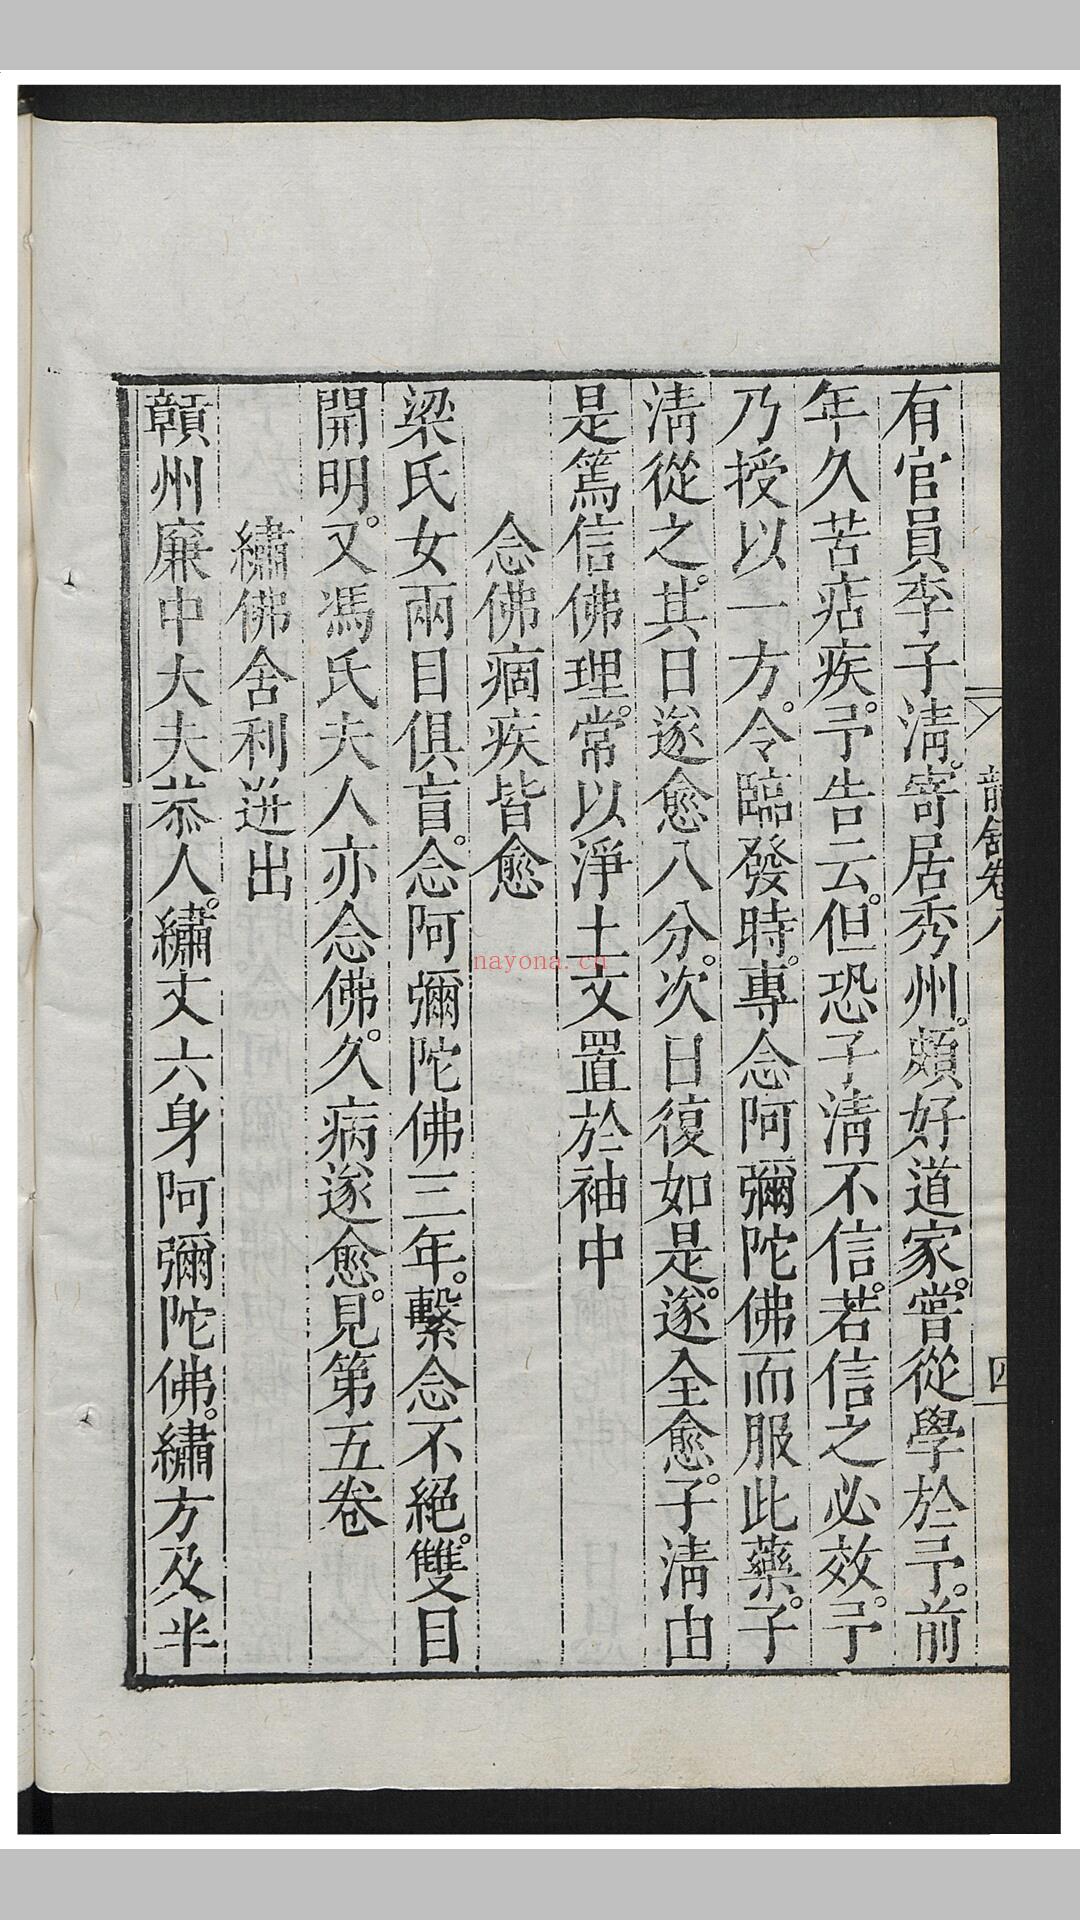 龍舒卷八
四
有官員李子淸。寄居秀州。頗好道家。嘗從學於予。前
年久苦痁疾。予告云。但恐子淸不信。若信之必效。予
乃授以一方。令臨發時。專念阿彌陀佛而服此藥。子
淸從之。其日遂愈八分。次日復如是。遂全愈。子淸由
是篤信佛理。常以淨土文置於袖中
念佛痼疾皆愈
梁氏女兩目俱盲。念阿彌陀佛三年。繫念不絕。雙目
開明。又馮氏夫人亦念佛。久病遂愈。見第五卷
繡佛舍利迸出
贑州廉中大夫恭人。繡丈六身阿彌陀佛。繡方及半
nayona.cn